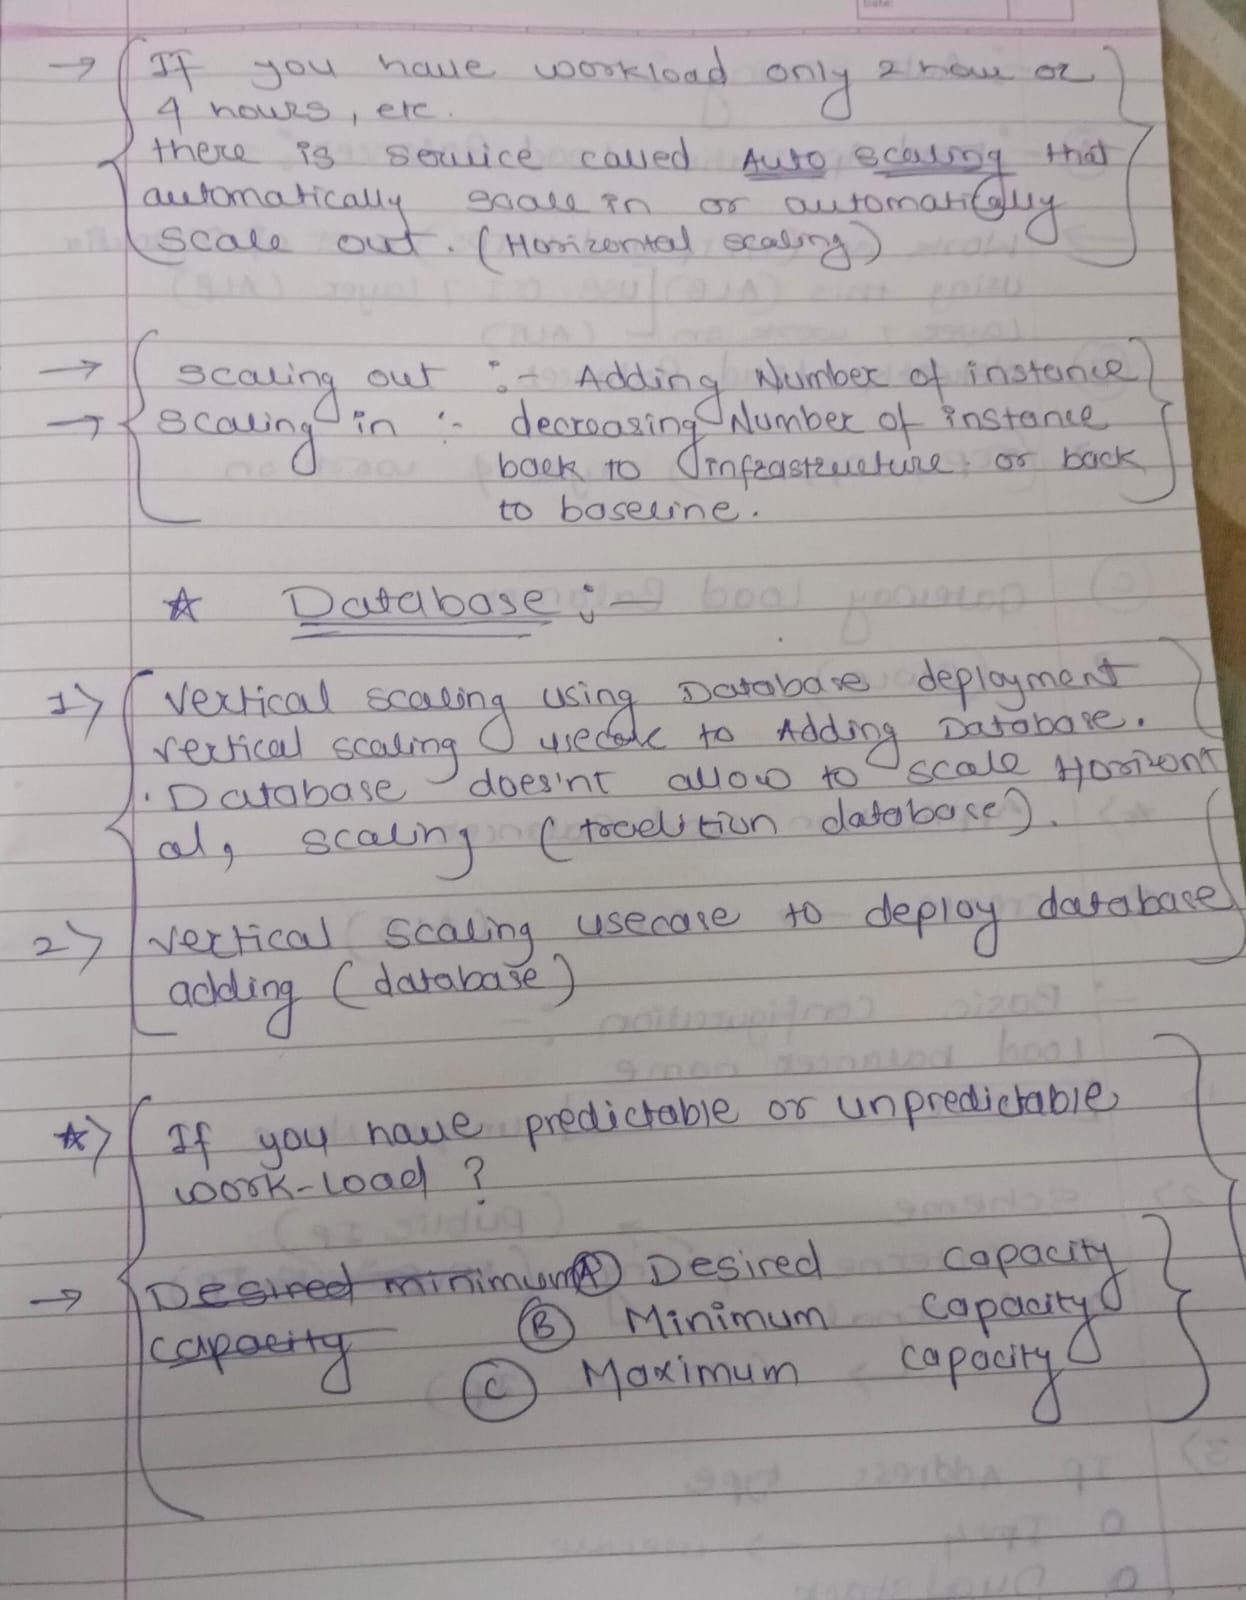 → If you have workload only 2 hour or
4 hours, etc.
there is service called Auto scaling that
automatically scale in or automatically
scale out. (Horizontal scaling)
→ scaling out :- Adding Number of instance
→ scaling in :- decreasing Number of instance
back to infrastructure or back
to baseline.
☆ Database :-
1) vertical scaling using Database deployment
vertical scaling usecase to Adding Database.
. Database does'nt allow to scale Horizont
al, scaling (tradition database).
2) vertical scaling usecase to deploy database
adding (database)
☆) If you have predictable or unpredictable
work-load ?
→ Desired minimum (A) Desired capacity
capacity (B) Minimum capacity
(C) Maximum capacity